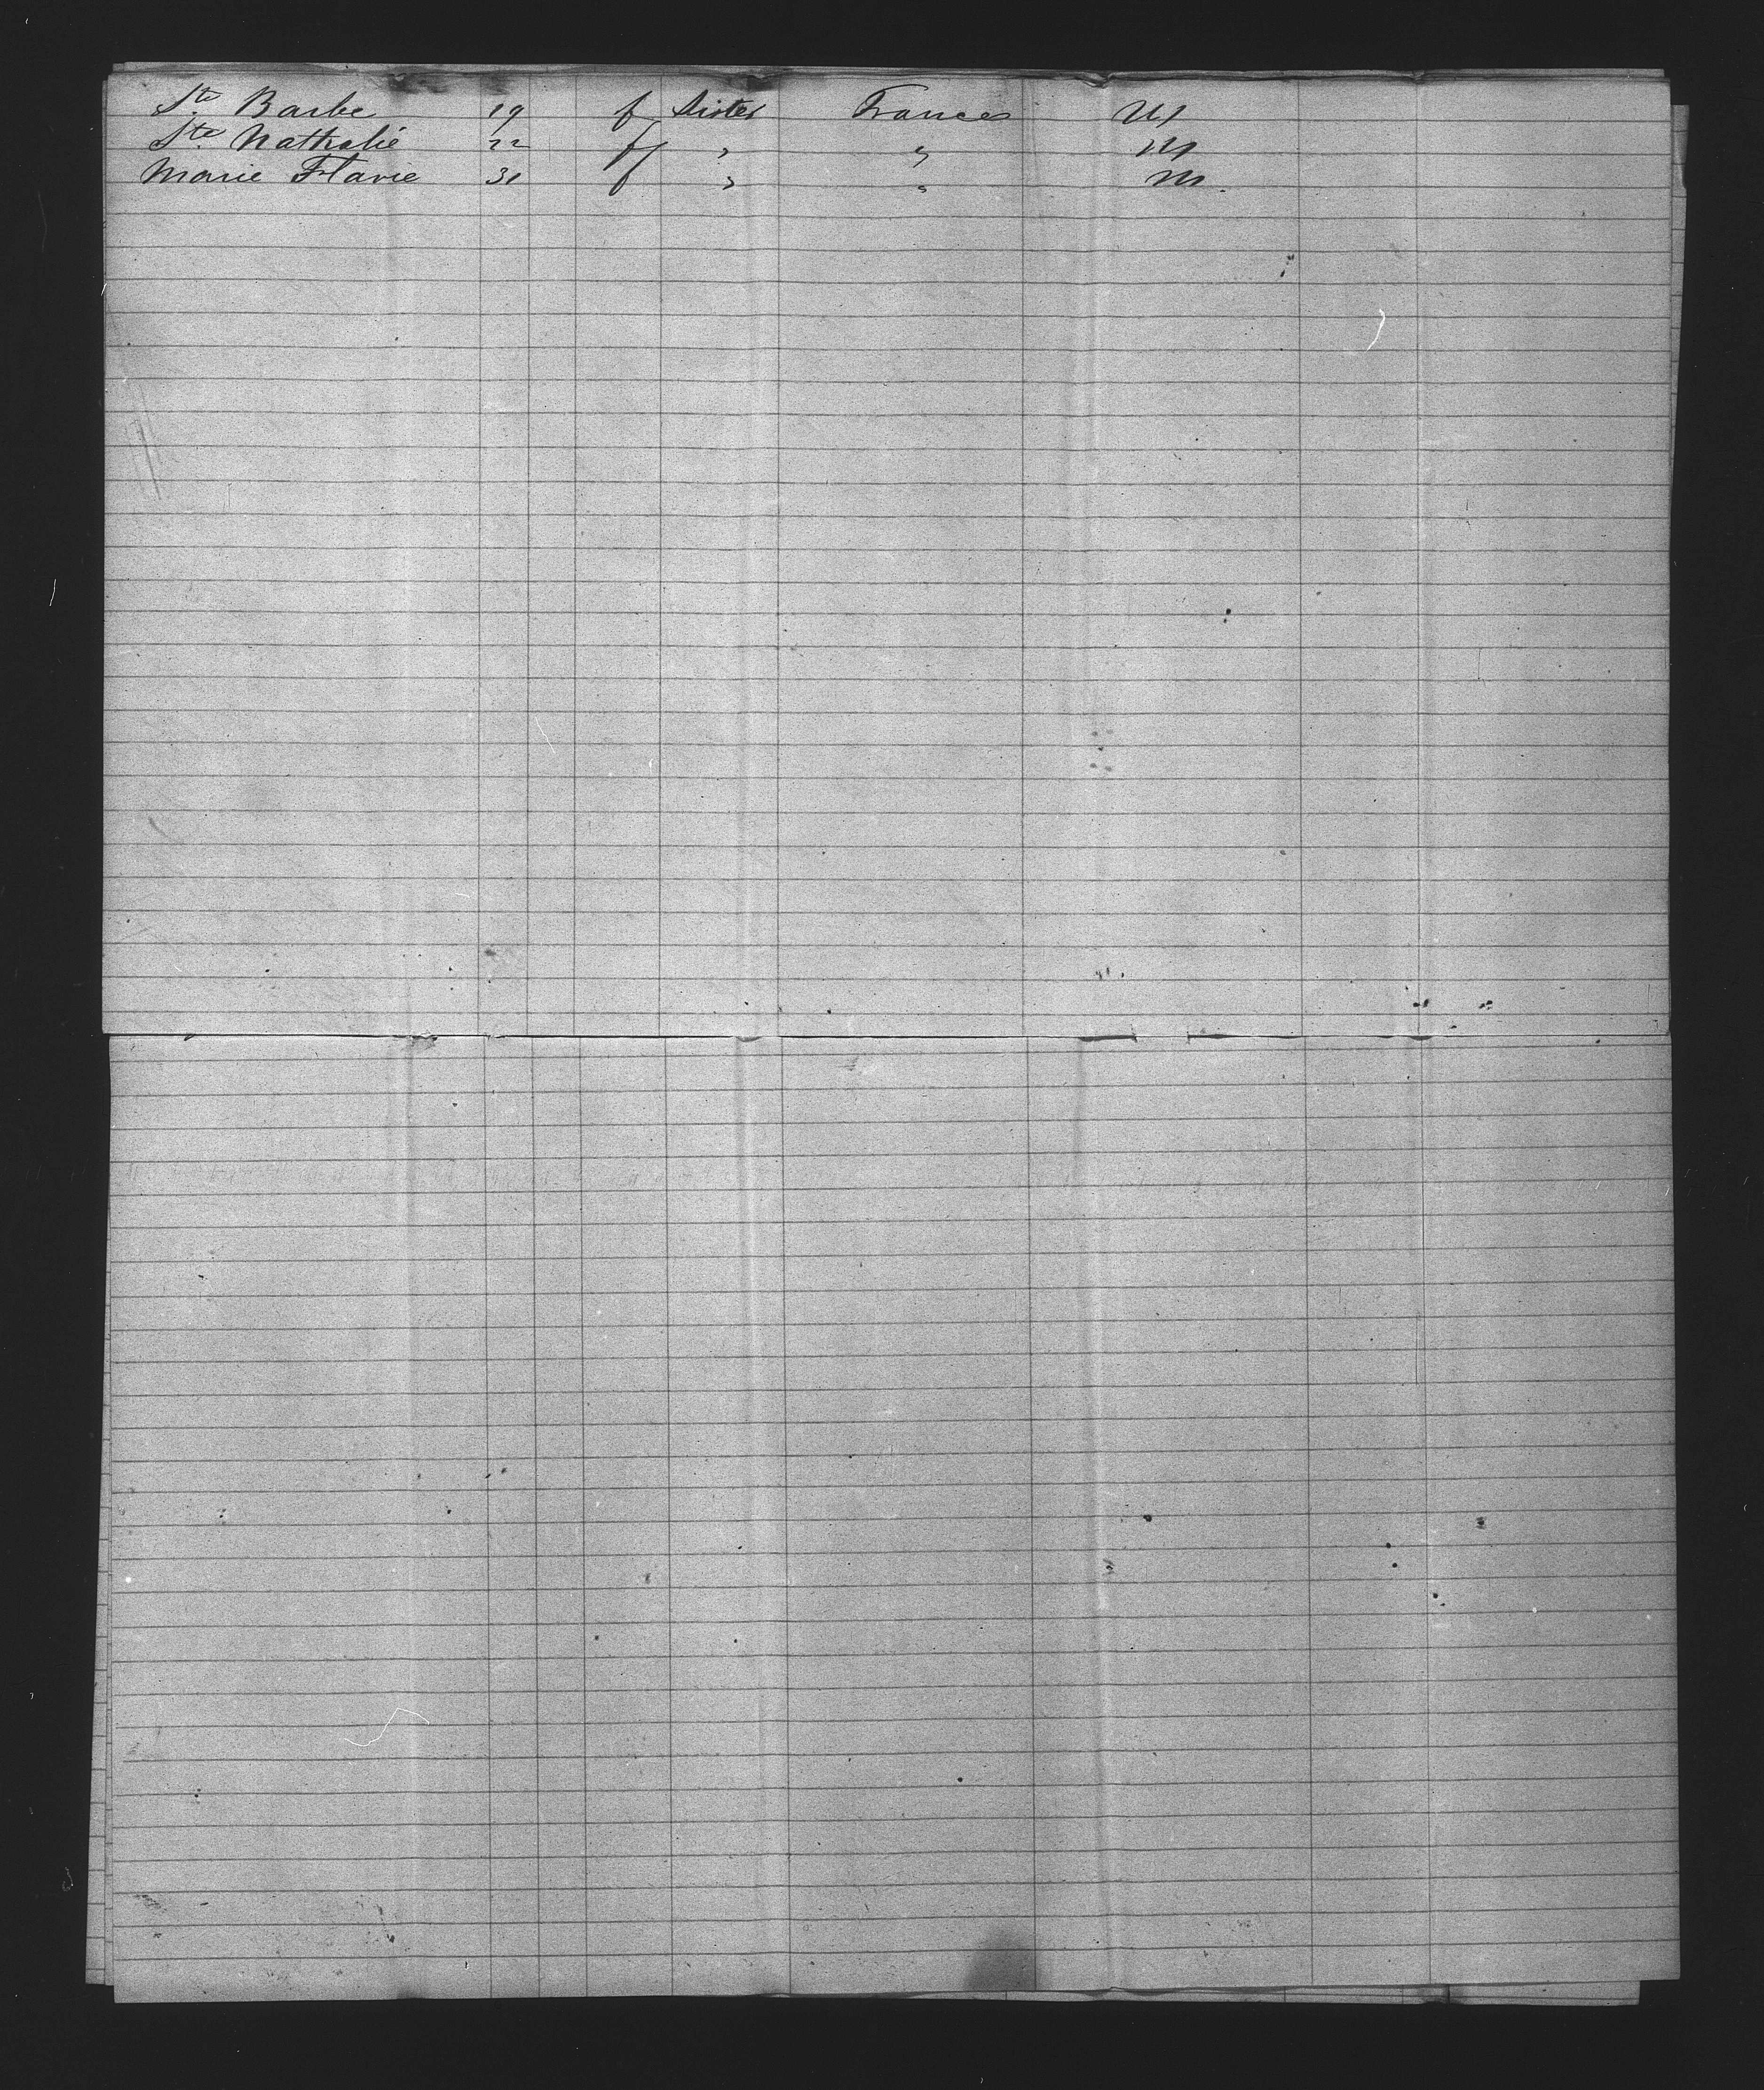 Ste Barbe 19 f Sister France
Ste Nathalié 22 f " "
Marie Flavie 31 f " "